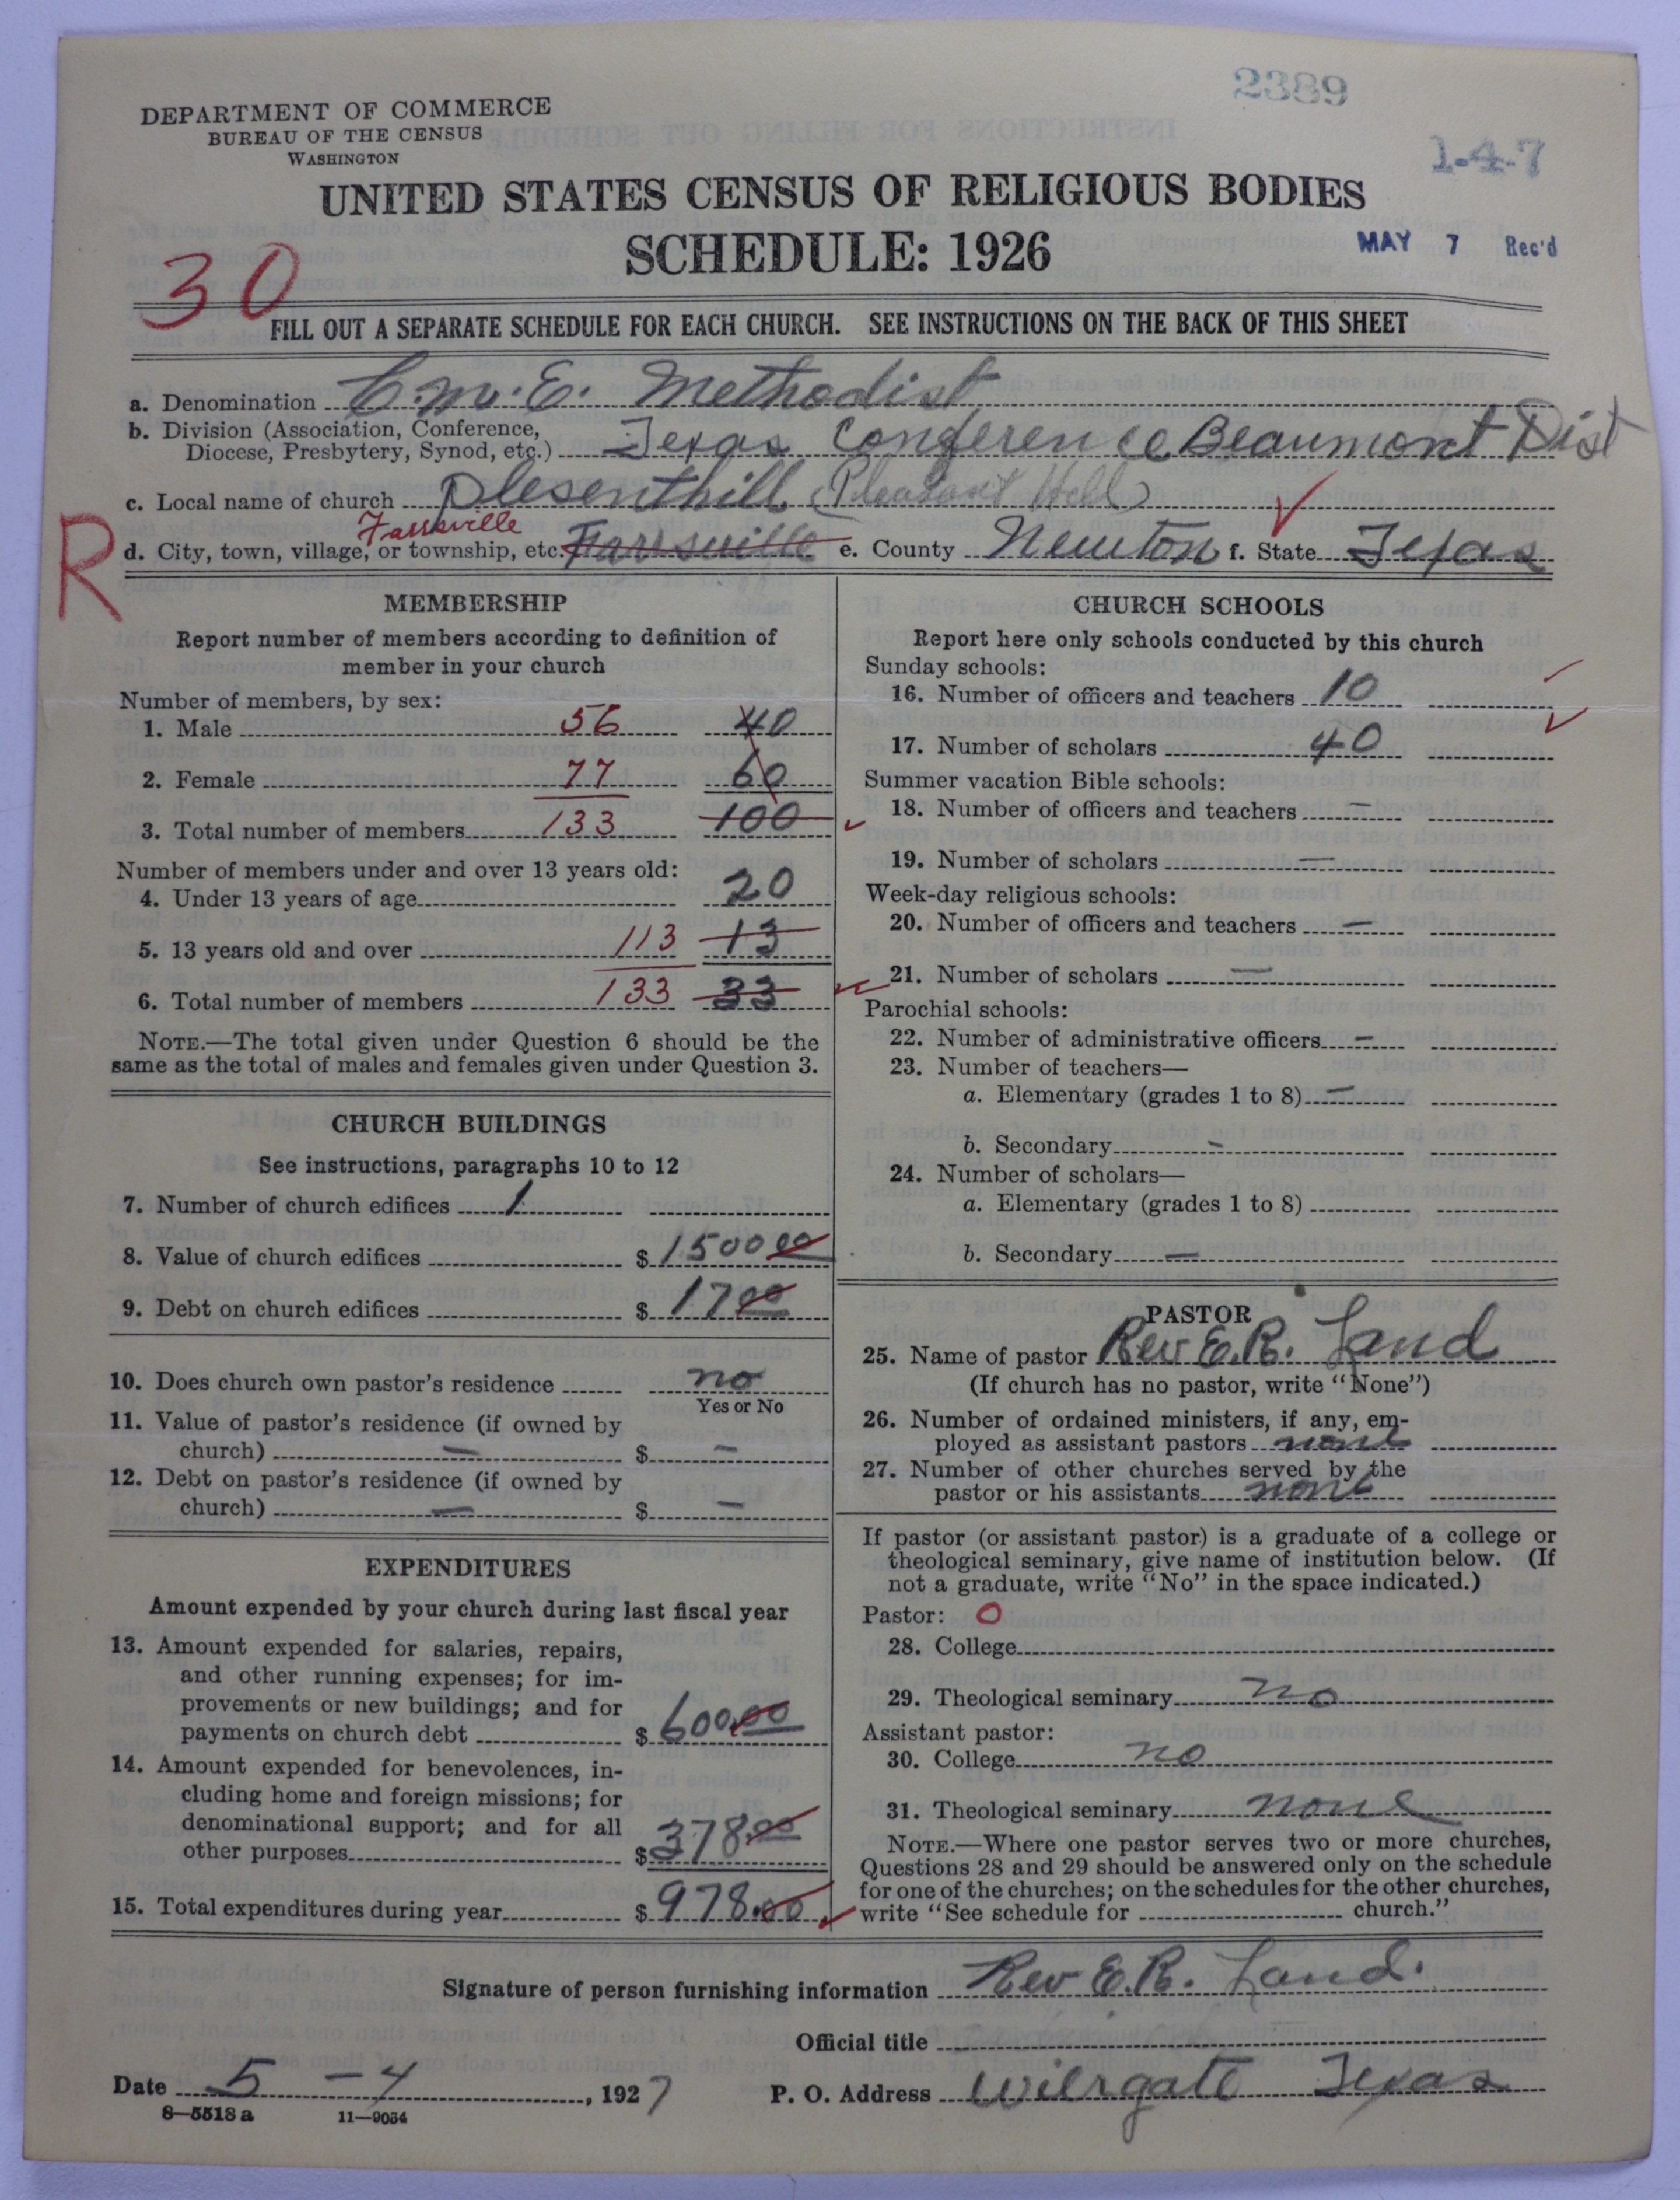 2389
DEPARTMENT OF COMMERCE
BUREAU OF THE CENSUS
WASHINGTON
1-4-7
UNITED STATES CENSUS OF RELIGIOUS BODIES
SCHEDULE: 1926
MAY 7 Rec'd
30
FILL OUT A SEPARATE SCHEDULE FOR EACH CHURCH. SEE INSTRUCTIONS ON THE BACK OF THIS SHEET
a. Denomination C.M.E. Methodist
b. Division (Association, Conference,
Diocese, Presbytery, Synod, etc.) Texas Conference Beaumont Dist
c. Local name of church Plesenthill (Pleasant Hill)
Farrsville
R
d. City, town, village, or township, etc. Farrsville e. County Newton f. State Texas
MEMBERSHIP
Report number of members according to definition of
member in your church
Number of members, by sex:
1. Male 56 40
2. Female 77 60
3. Total number of members 133 100
Number of members under and over 13 years old:
4. Under 13 years of age 20
5. 13 years old and over 113 13
6. Total number of members 133 33
NOTE.—The total given under Question 6 should be the
same as the total of males and females given under Question 3.
CHURCH BUILDINGS
See instructions, paragraphs 10 to 12
7. Number of church edifices 1
8. Value of church edifices $ 1500 00
9. Debt on church edifices $ 17 00
10. Does church own pastor's residence no
Yes or No
11. Value of pastor's residence (if owned by
church) — $ —
12. Debt on pastor's residence (if owned by
church) — $ —
EXPENDITURES
Amount expended by your church during last fiscal year
13. Amount expended for salaries, repairs,
and other running expenses; for im-
provements or new buildings; and for
payments on church debt $ 600.00
14. Amount expended for benevolences, in-
cluding home and foreign missions; for
denominational support; and for all
other purposes $ 378.00
15. Total expenditures during year $ 978.00
CHURCH SCHOOLS
Report here only schools conducted by this church
Sunday schools:
16. Number of officers and teachers 10
17. Number of scholars 40
Summer vacation Bible schools:
18. Number of officers and teachers —
19. Number of scholars —
Week-day religious schools:
20. Number of officers and teachers —
21. Number of scholars —
Parochial schools:
22. Number of administrative officers —
23. Number of teachers—
a. Elementary (grades 1 to 8) —
b. Secondary -
24. Number of scholars—
a. Elementary (grades 1 to 8)
b. Secondary —
PASTOR
25. Name of pastor Rev E.R. Land
(If church has no pastor, write "None")
26. Number of ordained ministers, if any, em-
ployed as assistant pastors none
27. Number of other churches served by the
pastor or his assistants none
If pastor (or assistant pastor) is a graduate of a college or
theological seminary, give name of institution below. (If
not a graduate, write "No" in the space indicated.)
Pastor: 0
28. College
29. Theological seminary no
Assistant pastor:
30. College no
31. Theological seminary none
NOTE.—Where one pastor serves two or more churches,
Questions 28 and 29 should be answered only on the schedule
for one of the churches; on the schedules for the other churches,
write "See schedule for church."
Signature of person furnishing information Rev E.R. Land.
Official title
Date 5 - 4, 1927 P. O. Address Wiergate Texas
8—5518 a 11—9054